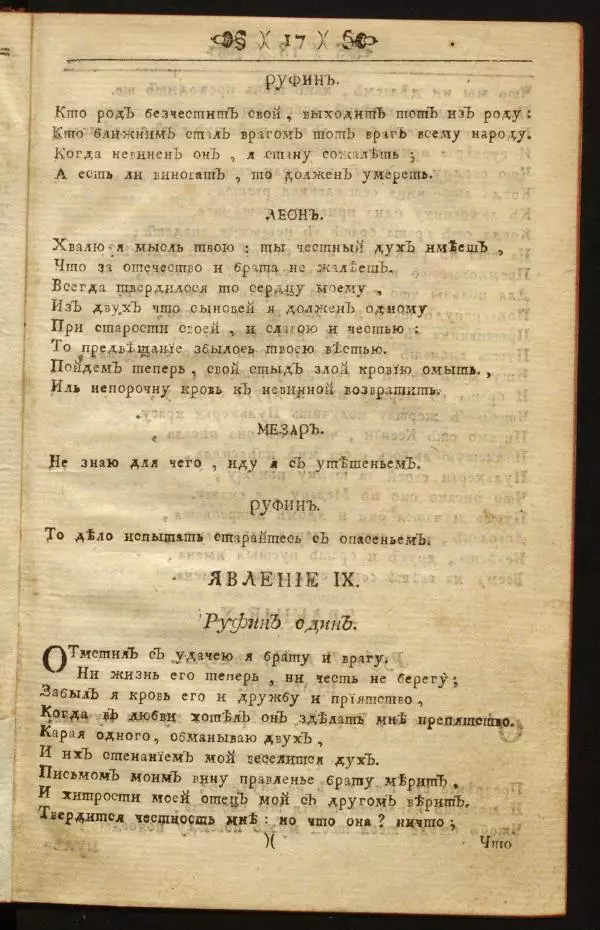 )( 17 )(
РУФИНЪ.
Кто родъ безчеститъ свой, выходитъ тотъ изъ роду:
Кто ближнимъ сталъ врагомъ тотъ врагъ всему народу.
Когда невиненъ онъ, я стану сожалѣть;
А есть ли виноватъ, то долженъ умереть.
ЛЕОНЪ.
Хвалю я мысль твою: ты честный духъ имѣешь,
Что за отечество и брата не жалѣешь.
Всегда твердилося то сердцу моему,
Изъ двухъ что сыновей я долженъ одному
При старости своей, и славою и честью:
То предвѣщанїе збылось твоею вѣстью.
Пойдемъ теперь, свой стыдъ злой кровїю омыть.,
Иль непорочну кровь къ невинной возвратить.
МЕЗАРЪ.
Не знаю для чего, иду я съ утѣшеньемъ.
РУФИНЪ.
То дѣло испытать старайтесь съ опасеньемъ.
ЯВЛЕНІЕ IX.
Руфинъ одинъ.
Отмстилъ съ удачею я брату и врагу.
Ни жизнь его теперь, ни честь не берегу;
Забылъ я кровь его и дружбу и прїятство,
Когда въ любви хотѣлъ онъ здѣлать мнѣ препятство.
Карая одного, обманываю двухъ,
И ихъ стенанїемъ мой веселится духъ.
Письмомъ моимъ вину правленье брату мѣритъ,
И хитрости моей отецъ мой съ другомъ вѣритъ.
Твердится честность мнѣ: но что она? ничто;
)( Что